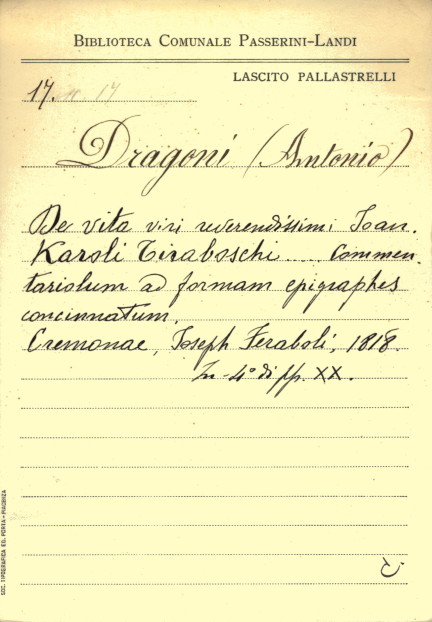 BIBLIOTECA COMUNALE PASSERINI-LANDI
LASCITO PALLASTRELLI
17.
Dragoni (Antonio)
De vita viri reverendissimi Ioan.
Karoli Tiraboschi..... Commen-
tariolum ad formam epigraphes
concinnatum.
Cremonae, Ioseph Feraboli, 1818.
In-4° di pp. XX.
SOC. TIPOGRAFICA ED. PORTA - PIACENZA